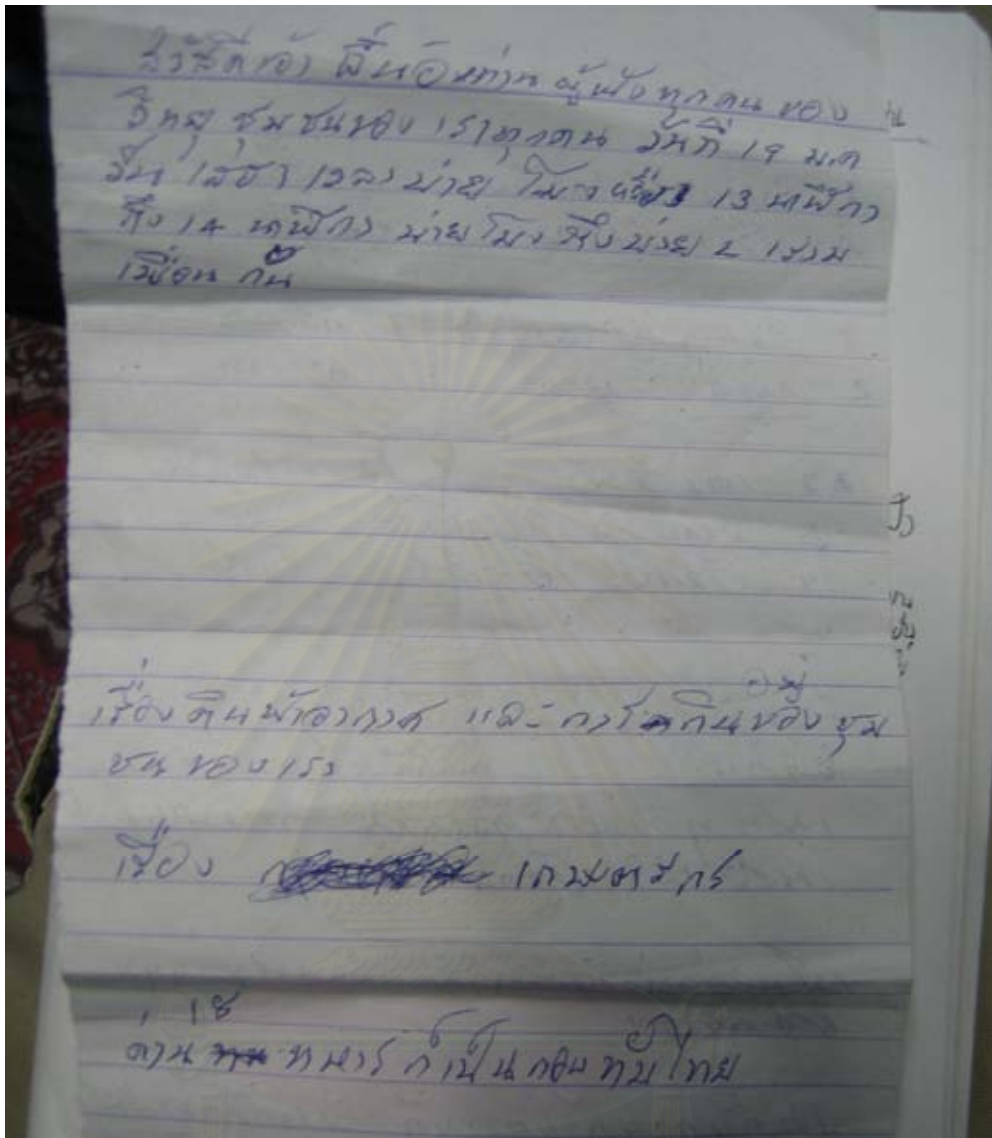 สวัสดีเจ้า พี่น้องท่าน ผู้ฟังทุกคน ของ
วิทยุ ชุมชนของ เราทุกคน วันที่ 19 ม.ค
วัน เสาร์ เวลา บ่าย โมง 13 นาฬิกา
ถึง 14 นาฬิกา บ่ายโมง ถึงบ่าย 2
เพื่อน กัน
อยู่
เรื่อง ดินฟ้าอากาศ และ การกินของ ชุม
ชน ของเรา
เรื่อง เกษตรกร
ด่าน ทหาร ก็เป็น กองทัพไทย